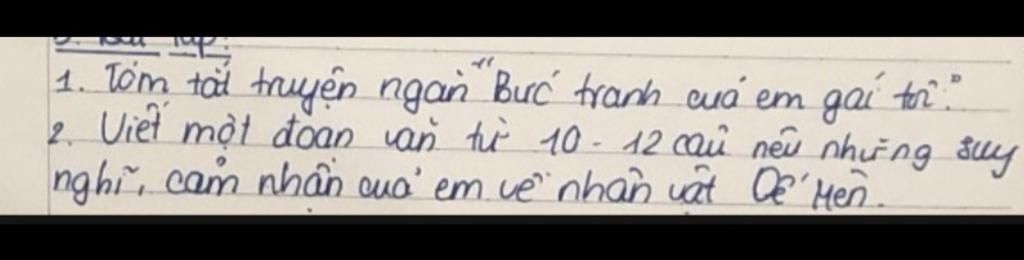 3. Bài tập:
1. Tóm tắt truyện ngắn "Bức tranh của em gái tôi."
2. Viết một đoạn văn từ 10 - 12 câu nêu những suy
nghĩ, cảm nhận của em về nhân vật Dế Mèn.